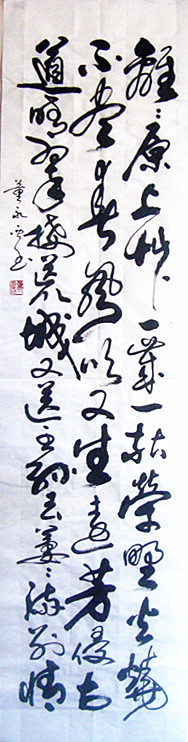 離〻原上草一歲一枯榮野火燒
不盡春風吹又生遠芳侵古
道晴翠接荒城又送王孫去萋〻滿別情
董永书